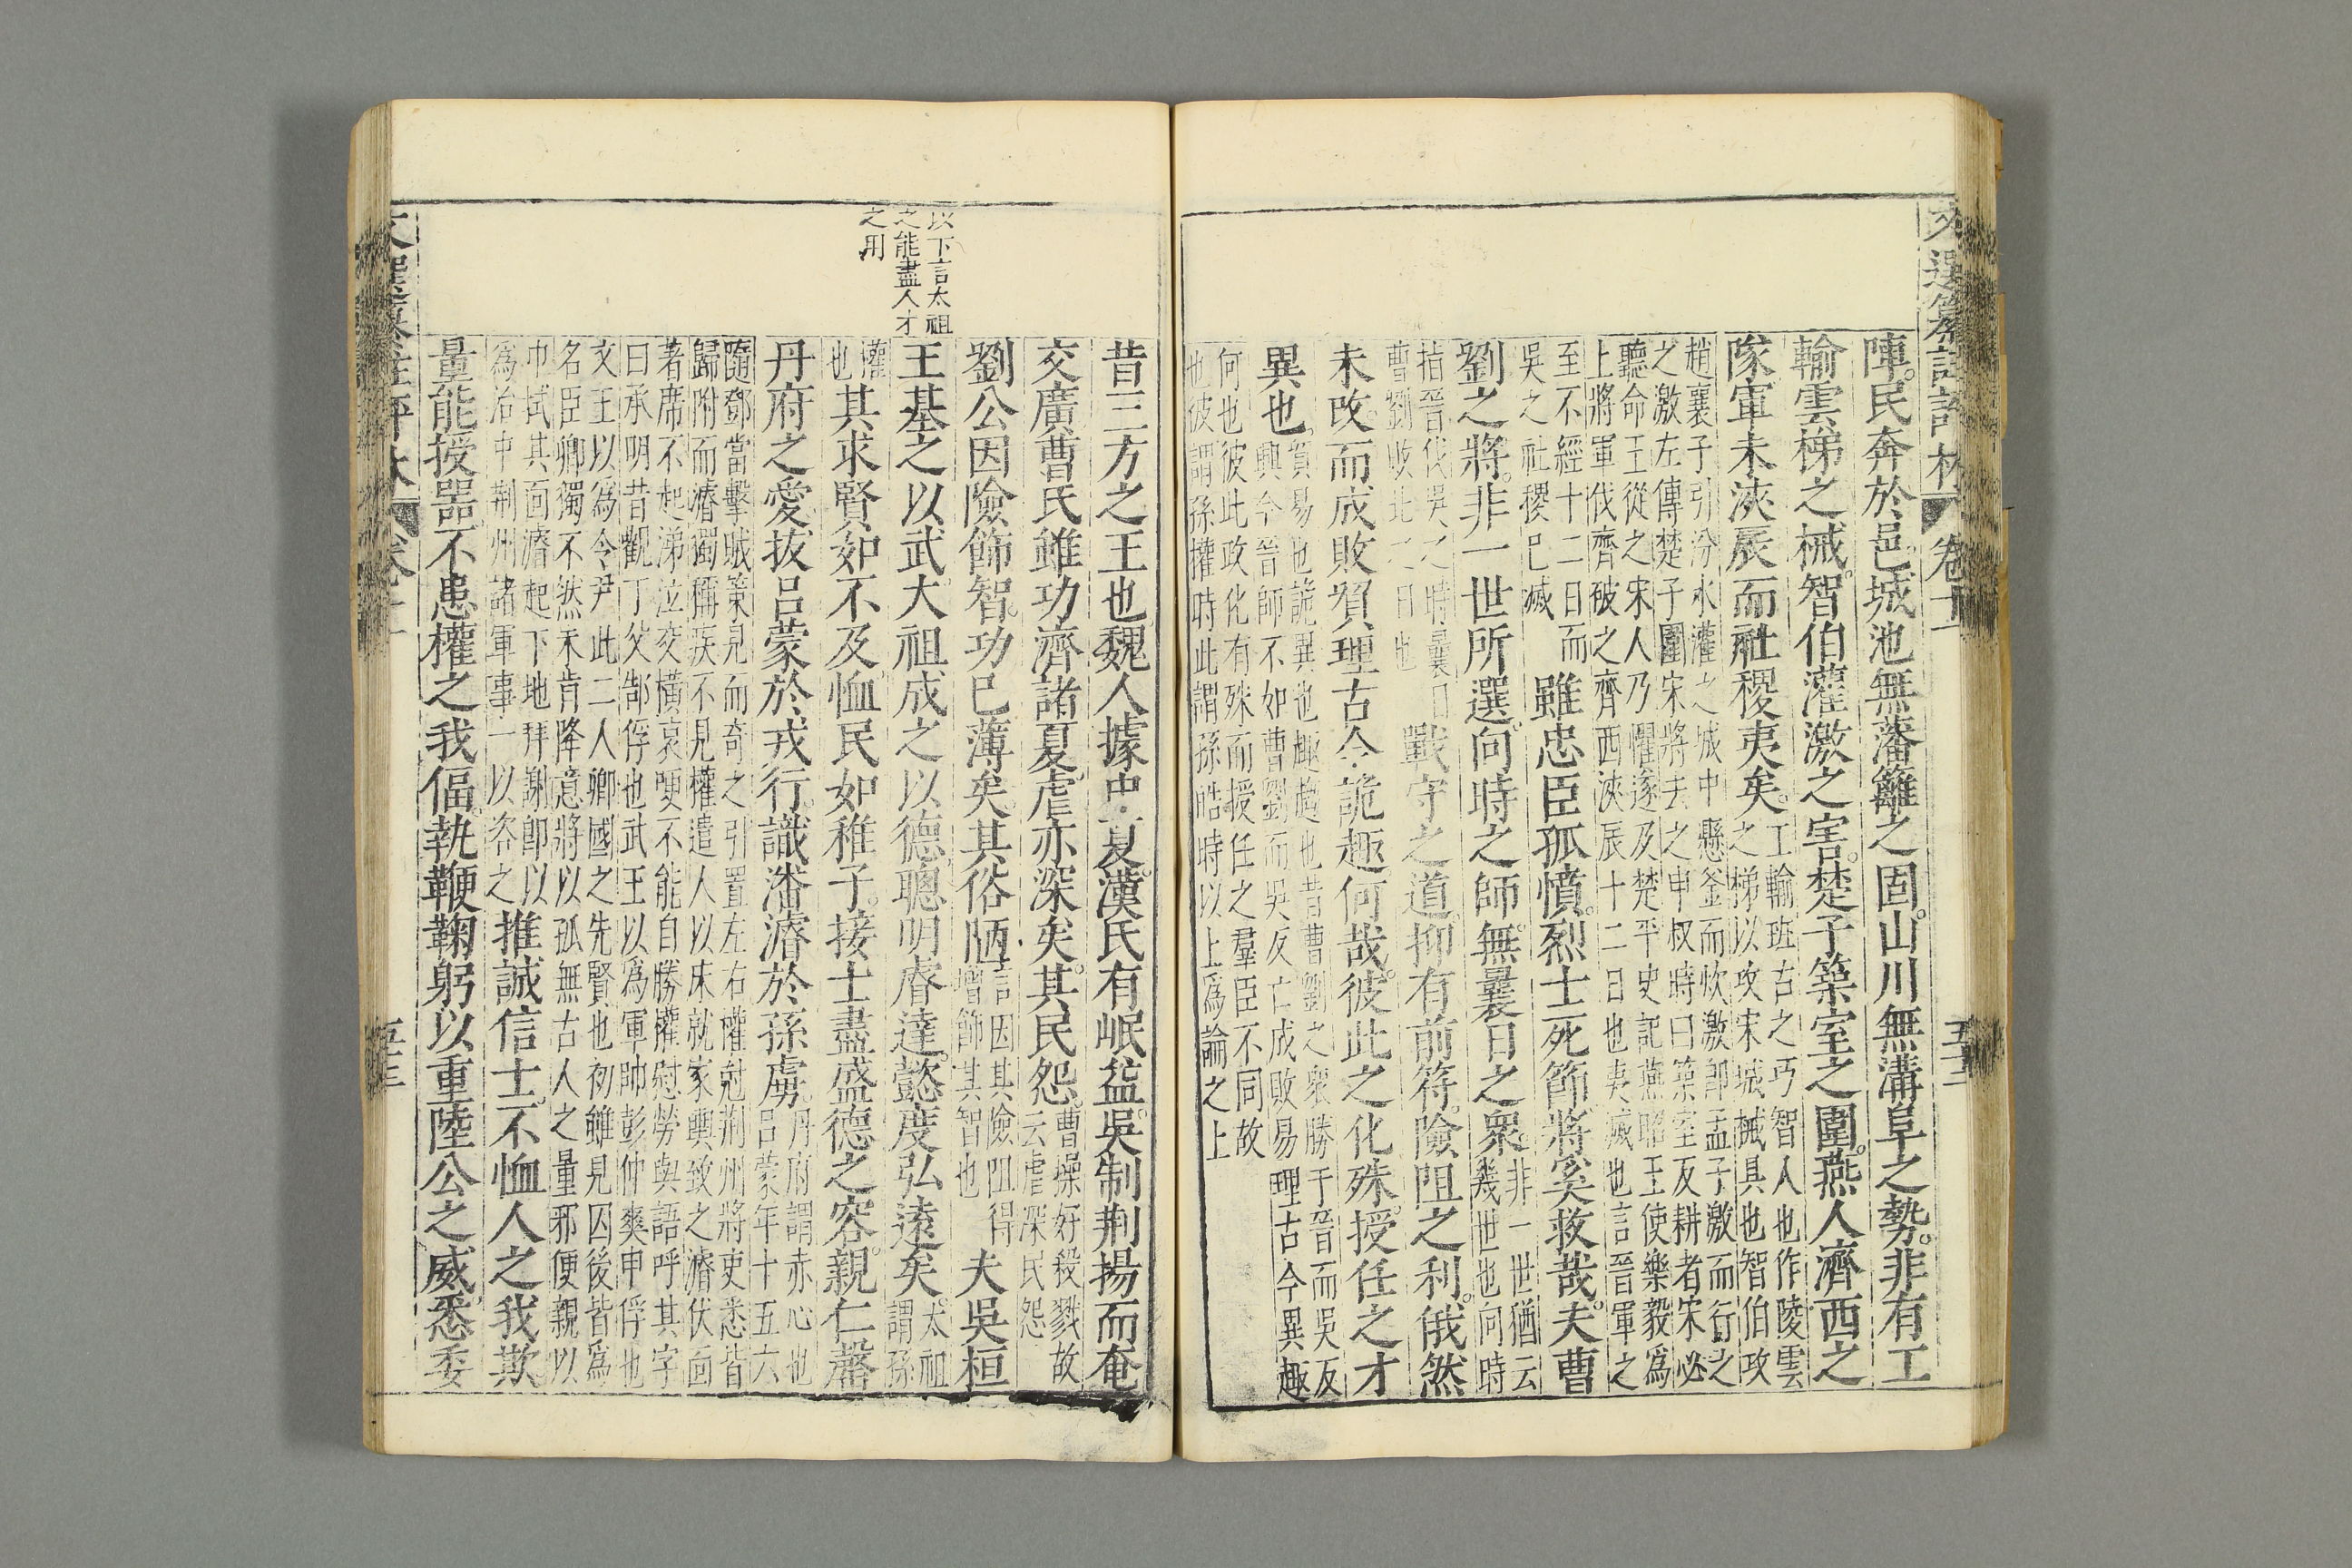 陣。民奔於邑。城池無藩籬之固。山川無溝阜之勢。非有工
輸雲梯之械。智伯灌激之害。楚子築室之圍。燕人濟西之
隊。軍未浹辰而社稷夷矣。
工輸班古之巧智人也作陵雲
之梯以攻宋城械具也智伯攻
趙襄子引汾水灌之城中懸釜而炊激即孟子激而行之
之激左傳楚子圍宋將去之申叔時曰築室反耕者宋必
聽命王從之宋人乃懼遂及楚平史記燕昭王使樂毅為
上將軍伐齊破之齊西浹辰十二日也夷滅也言晉軍之
至不經十二日而
吳之社稷已滅
雖忠臣孤憤。烈士死節將奚救哉。夫曹
劉之將。非一世所選。向時之師。無曩日之衆。
非一世猶云
幾世也向時
指晉伐吳之時曩日
曹劉收北之日也
戰守之道。抑有前符。險阻之利。俄然
未改。而成敗貿理。古今詭趣。何哉。彼此之化殊。授任之才
異也。
貿易也詭異也趣趨也昔曹劉之衆勝于晉而吳反
興今晉師不如曹劉而吳反亡成敗易理古今異趣
何也彼此政化有殊而授任之羣臣不同故
也彼謂孫權時此謂孫皓時以上為論之上
昔三方之王也。魏人據中夏。漢氏有岷益。吳制荆揚而奄
交廣。曹氏雖功濟諸夏。虐亦深矣。其民怨。
曹操好殺戮故
云虐深民怨
劉公因險飾智。功已薄矣。其俗陋。
言因其險阻得
增飾其智也
夫吳桓
以下言太祖
之能盡人才
之用
王基之以武。大祖成之以德。聰明睿達。懿度弘遠矣。
太祖
謂孫
權
也
其求賢如不及。恤民如稚子。接士盡盛德之容。親仁罄
丹府之愛。拔呂蒙於戎行。識潘濬於孫虜。
丹府謂赤心也
呂蒙年十五六
隨鄧當擊賊策見而奇之引置左右權尅荆州將吏悉皆
歸附而濬獨稱疾不見權遣人以床就家輿致之濬伏面
著席不起涕泣交橫哀哽不能自勝權慰勞與語呼其字
曰承明昔觀丁父鄀俘也武王以為軍帥彭仲爽申俘也
文王以為令尹此二人卿國之先賢也初雖見囚後皆為
名臣卿獨不然未肯降意將以孤無古人之量邪便親以
巾拭其面濬起下地拜謝即以
為治中荆州諸軍事一以咨之
推誠信士。不恤人之我欺。
量能授器。不患權之我偪。執鞭鞠躬。以重陸公之威。悉委
卷十一
五十三